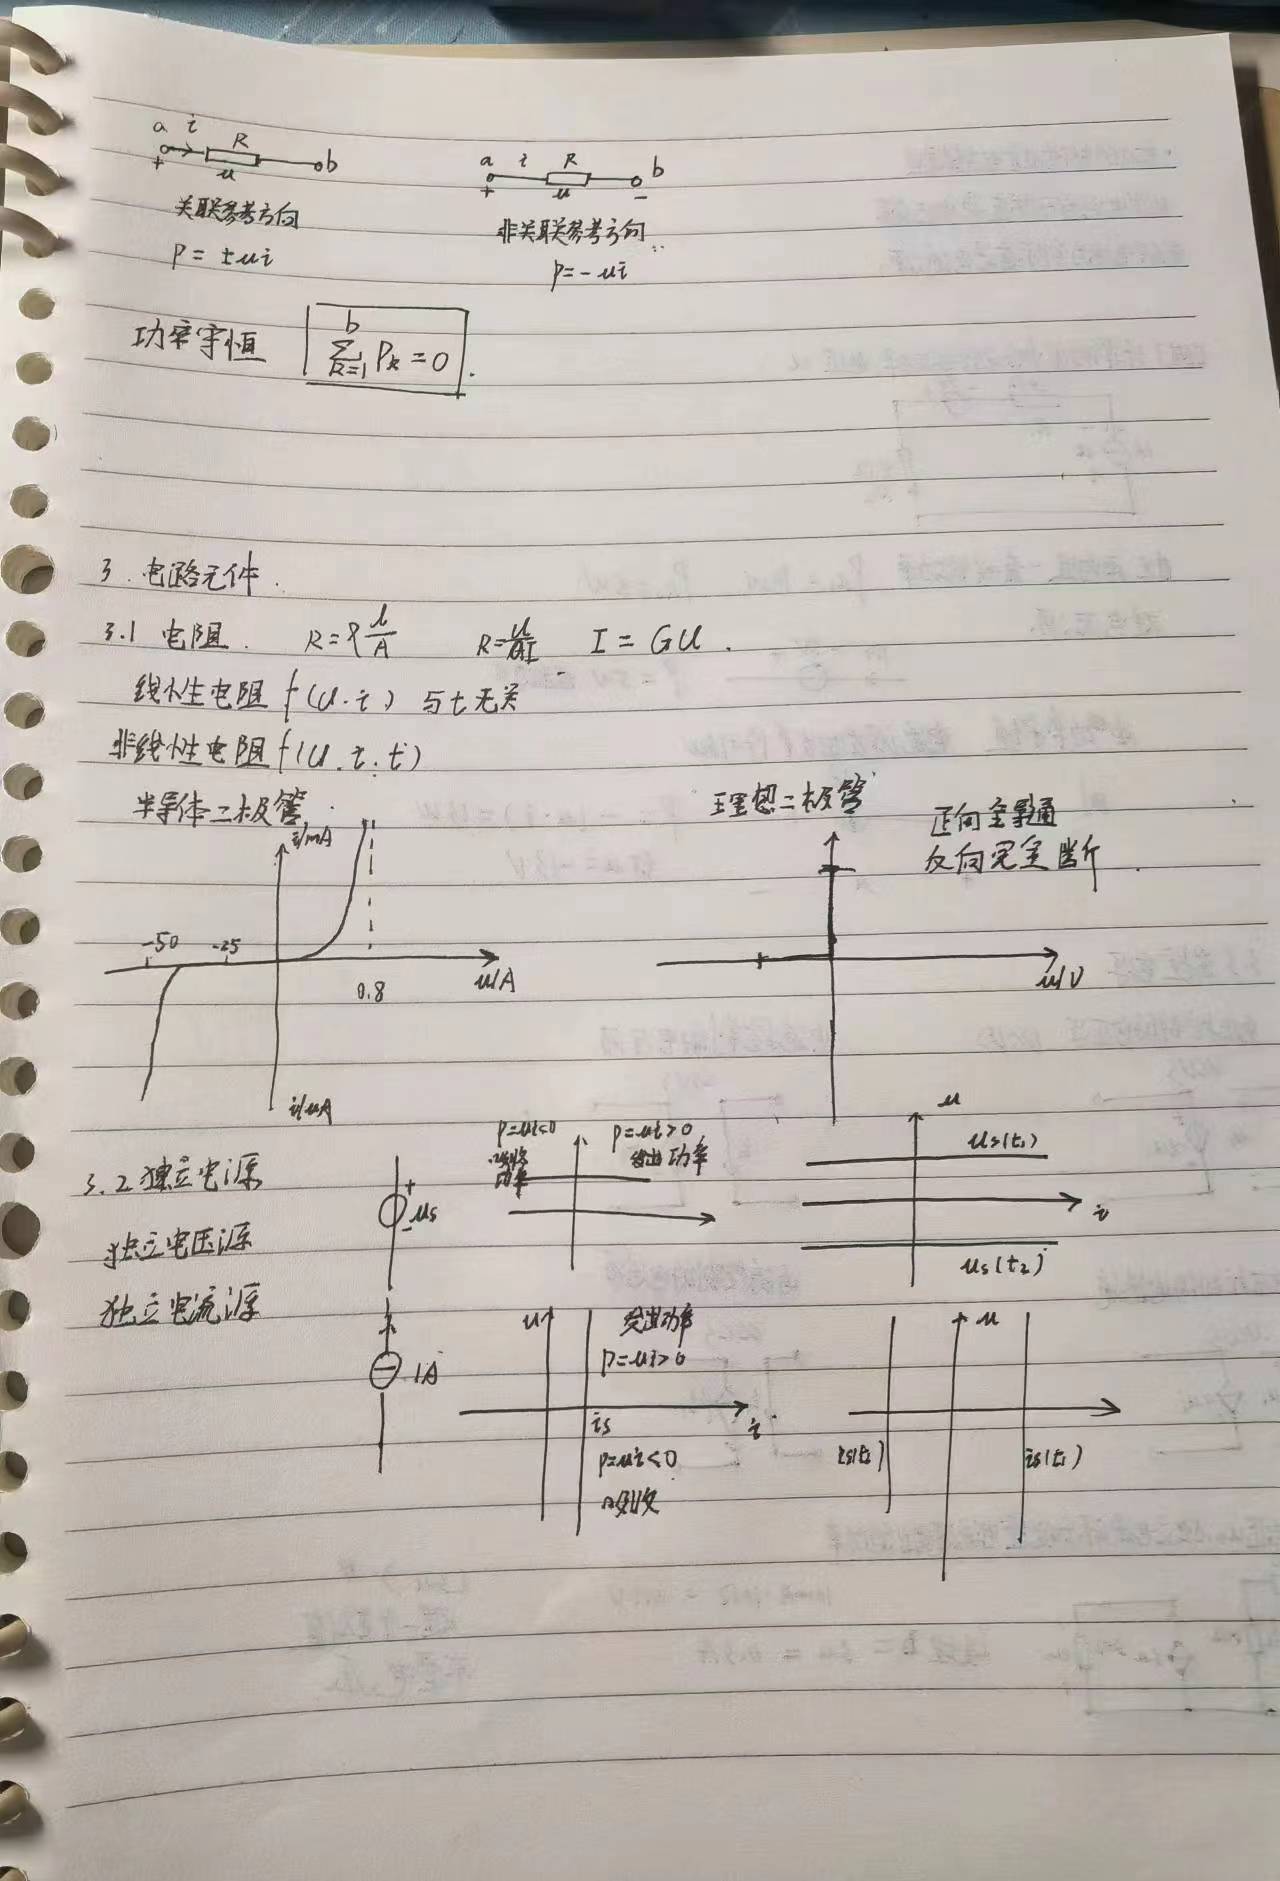 a i R b
+ u
关联参考方向
P = ±ui
a i R b
+ u −
非关联参考方向
P = −ui
功率守恒 ∑ᵇₖ₌₁ Pₖ = 0 .
3. 电路元件.
3.1 电阻. R=ρ l/A R= I = GU .
线性电阻 f(u.i) 与t无关
非线性电阻 f(u.i.t)
半导体二极管
i/mA
-50 -25
0.8
u/A
i/uA
理想二极管
正向全导通
反向完全断
u/V
3.2 独立电源
独立电压源
独立电流源
+
us
−
P=ui<0
吸收
功率
P=ui>0
给出功率
u
us(t₁)
i
us(t₂)
1A
u
给出功率
P=ui>0
is
i
P=ui<0
吸收
u
is(t₁)